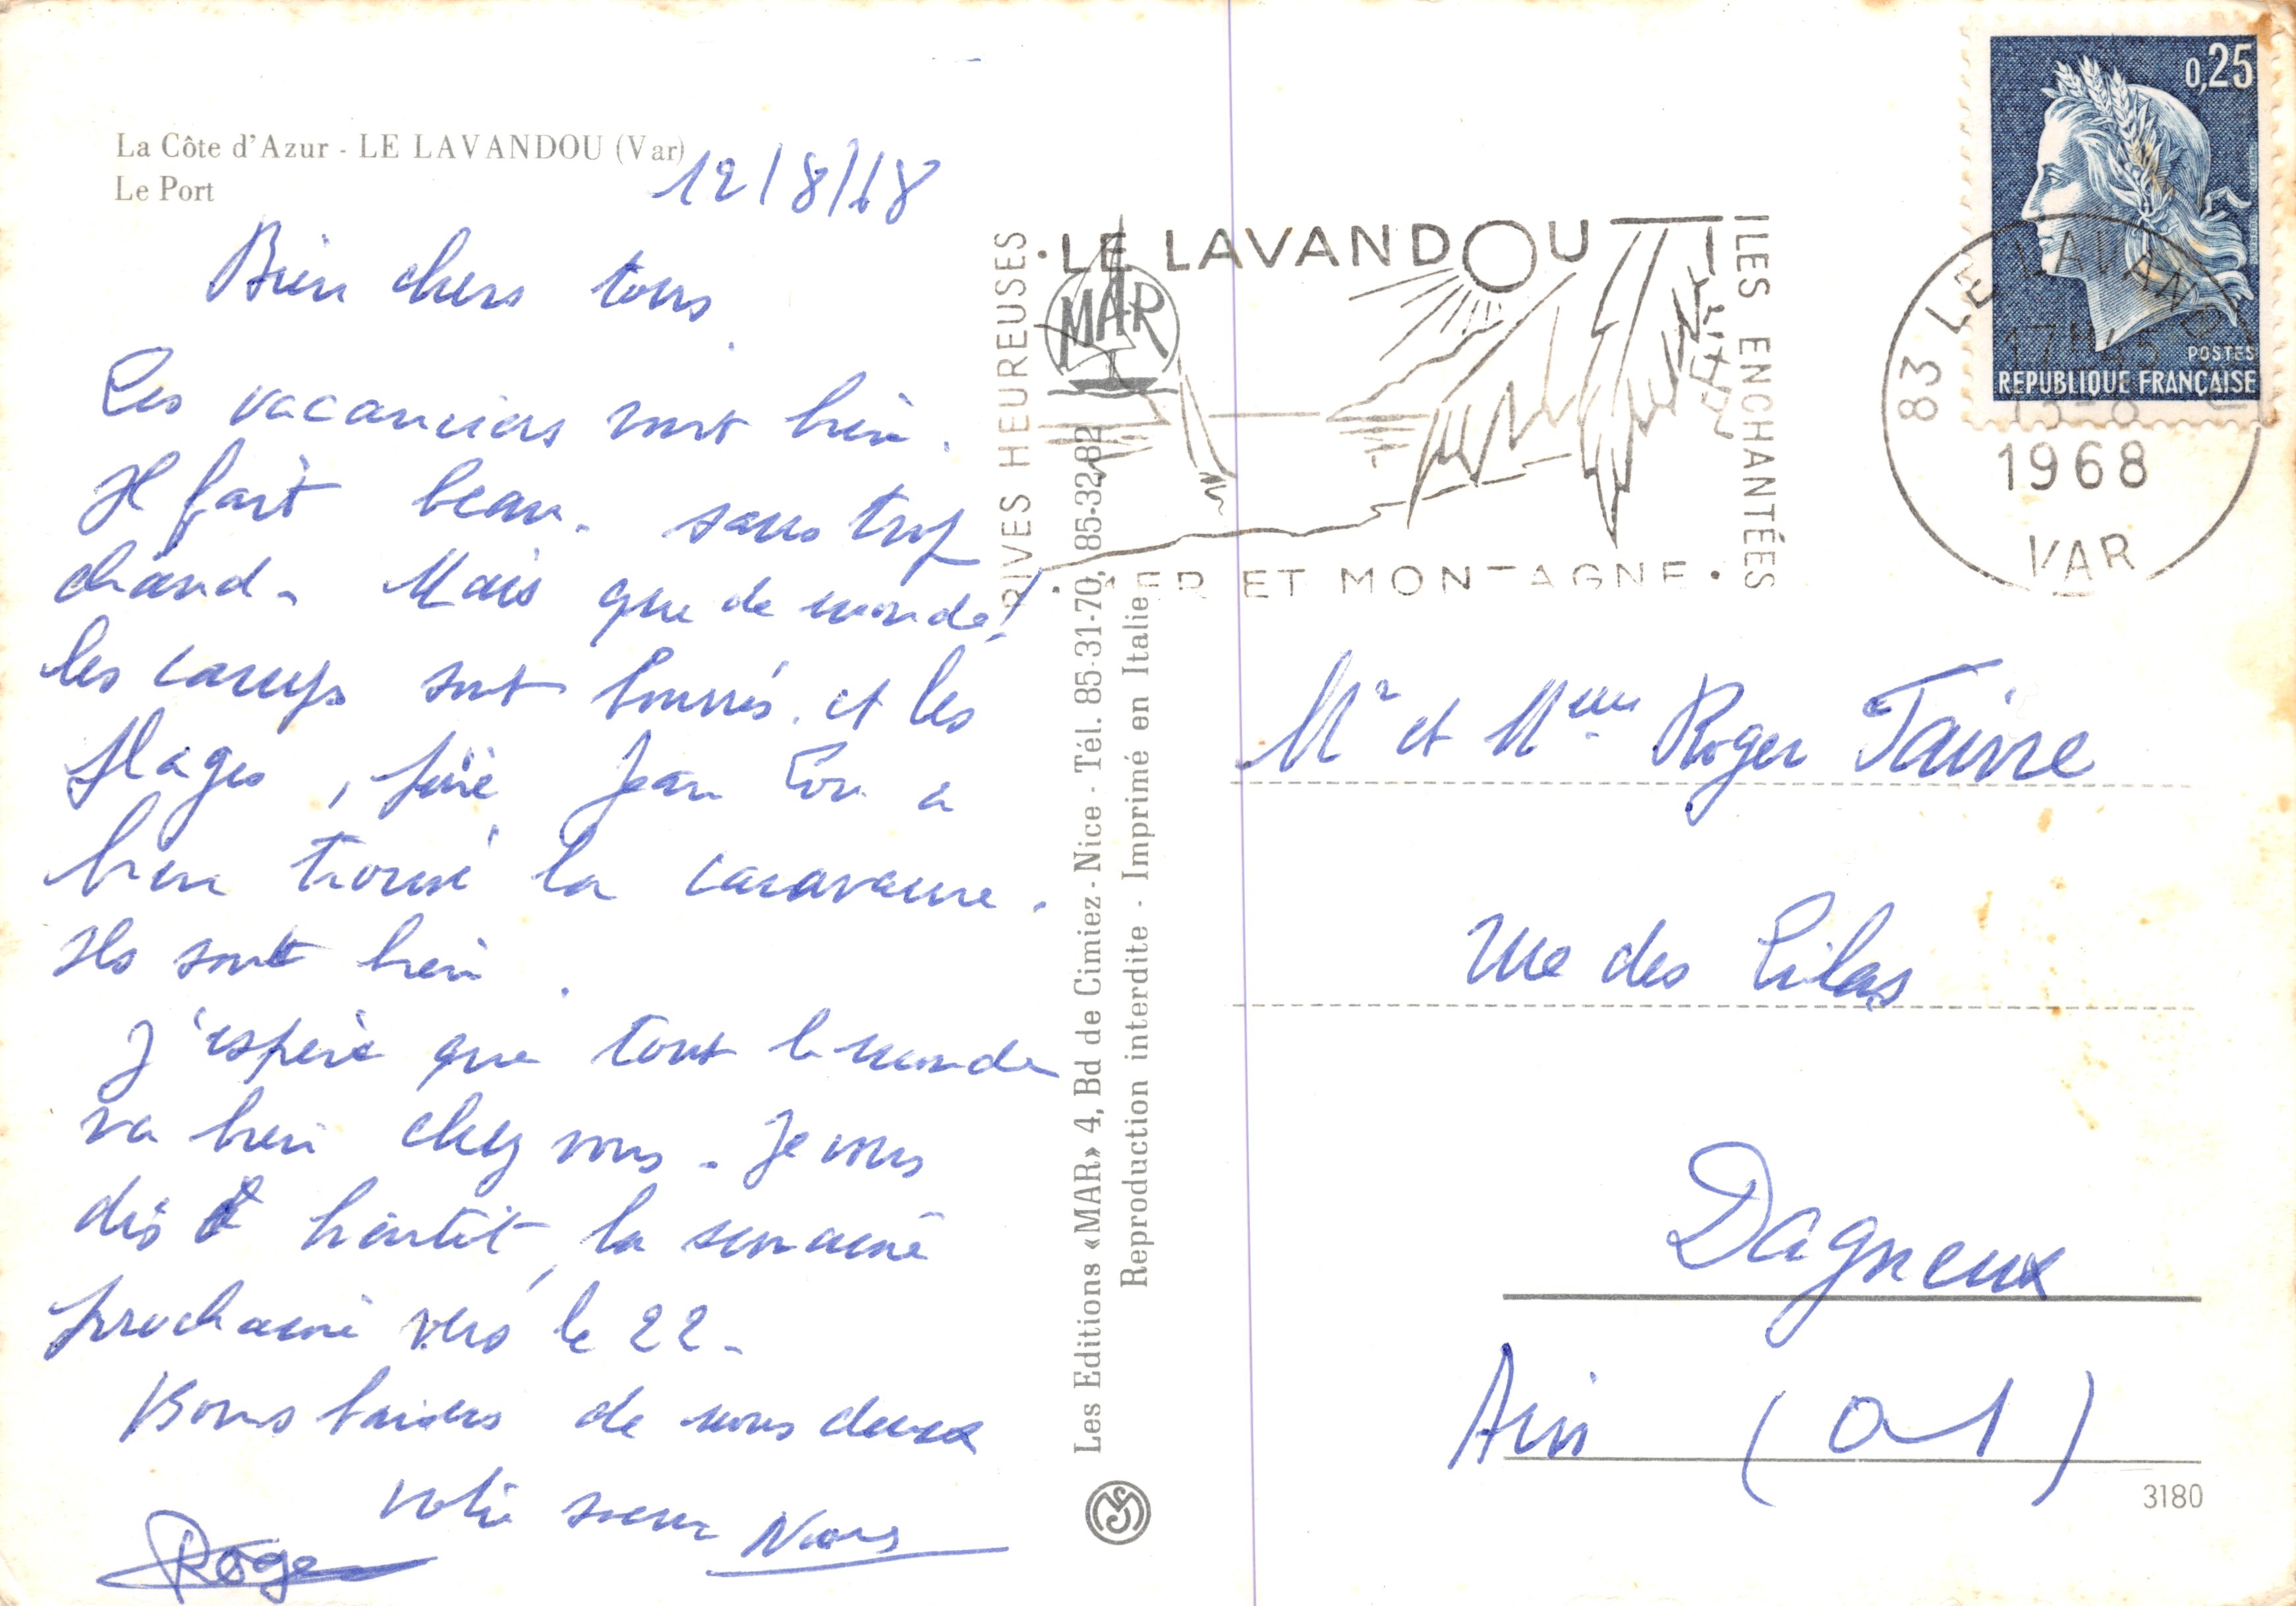 La Côte d'Azur - LE LAVANDOU (Var)
Le Port
12/8/68
Bien chers tous
Les vacanciers vont bien.
Il fait beau. sans trop
chaud. Mais que de monde!
les camps sont bourrés. et les
plages, Jean a
bien trouvé la caravane.
Ils sont bien.
J'espère que tout le monde
va bien chez vous. Je vous
dis à bientôt, la semaine
prochaine vers le 22.
Bons baisers de nous deux
votre soeur
Roger
Les Editions «MAR» 4, Bd de Cimiez - Nice - Tél. 85-31-70, 85-32-82
Reproduction interdite - Imprimé en Italie
MAR
RIVES HEUREUSES
LE LAVANDOU
ILES ENCHANTÉES
MER ET MONTAGNE
83 LE LAVANDOU
17H45
13-8
1968
VAR
0,25
POSTES
REPUBLIQUE FRANÇAISE
Mr et Mme Roger Faivre
rue des Lilas
Dagneux
Ain (01)
3180